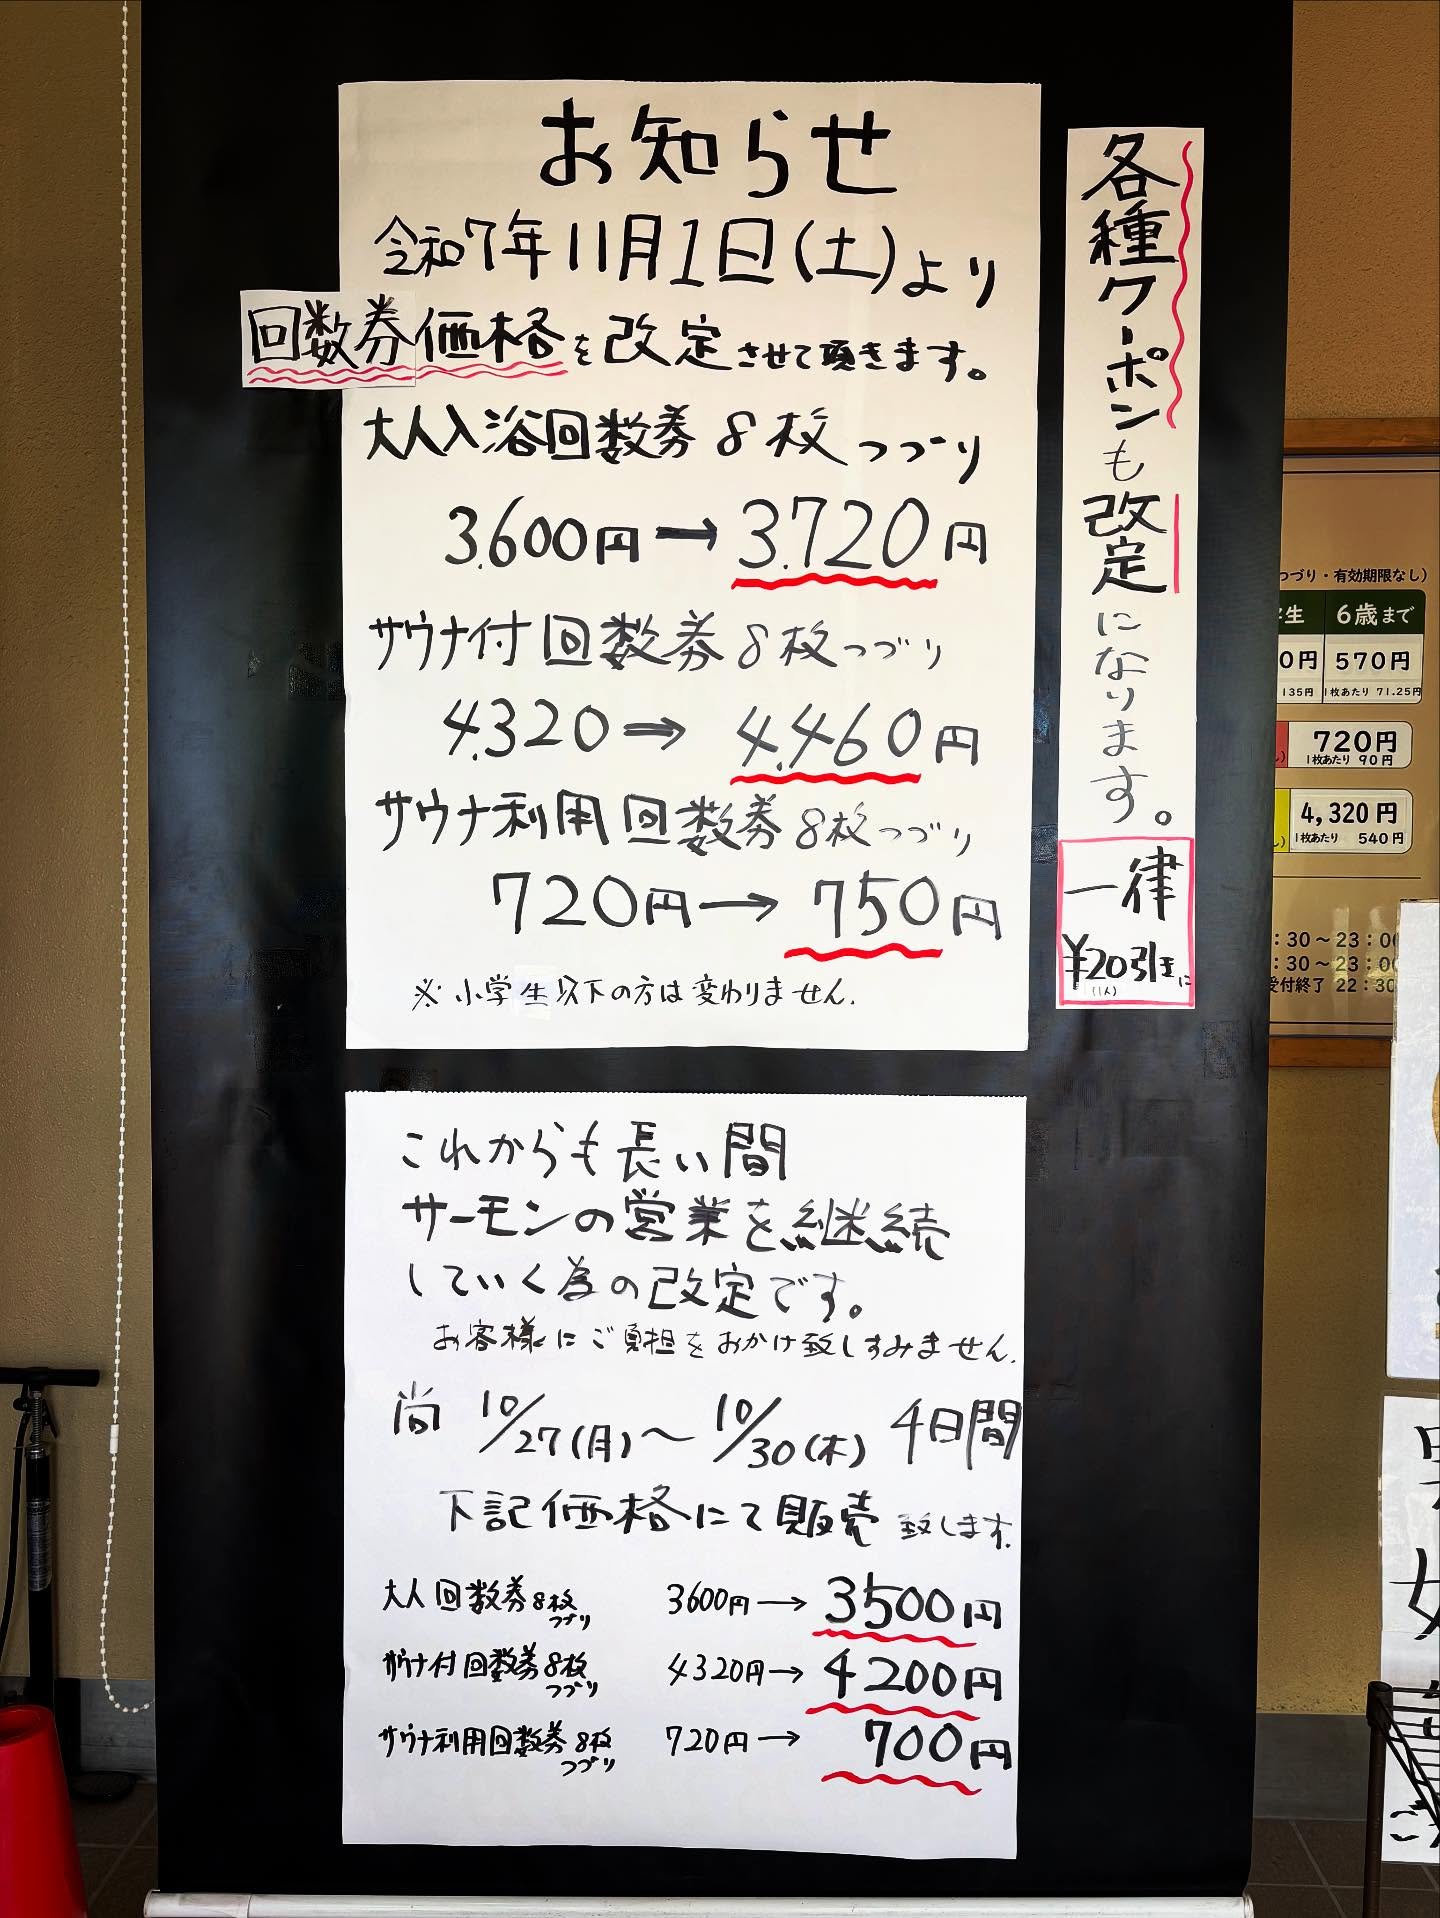 お知らせ
令和7年11月1日(土)より
回数券価格を改定させて頂きます。
大人入浴回数券8枚つづり
3.600円→3.720円
サウナ付回数券8枚つづり
4.320→4.460円
サウナ利用回数券8枚つづり
720円→750円
※小学生以下の方は変わりません.
各種クーポンも改定になります。
一律
¥20引きに
(1人)
これからも長い間
サーモンの営業を継続
していく為の改定です。
お客様にご負担をおかけ致しすみません.
尚 10/27(月)〜10/30(木) 4日間
下記価格にて販売致します.
大人回数券8枚つづり 3600円→3500円
サウナ付回数券8枚つづり 4320円→4200円
サウナ利用回数券8枚つづり 720円→700円
つづり・有効期限なし)
生 6歳まで
0円 570円
135円 1枚あたり 71.25円
720円
1枚あたり 90円
4,320円
1枚あたり 540円
:30〜23:00
:30〜23:00
受付終了 22:30
男
女